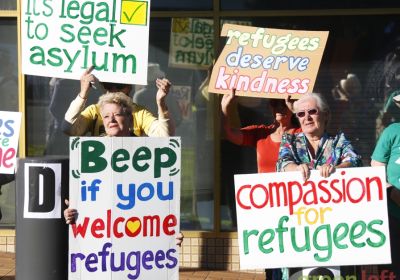 It's legal
to seek
asylum
refugees
deserve
kindness
D
Beep
if you
welcome
refugees
Compassion
for
refugees